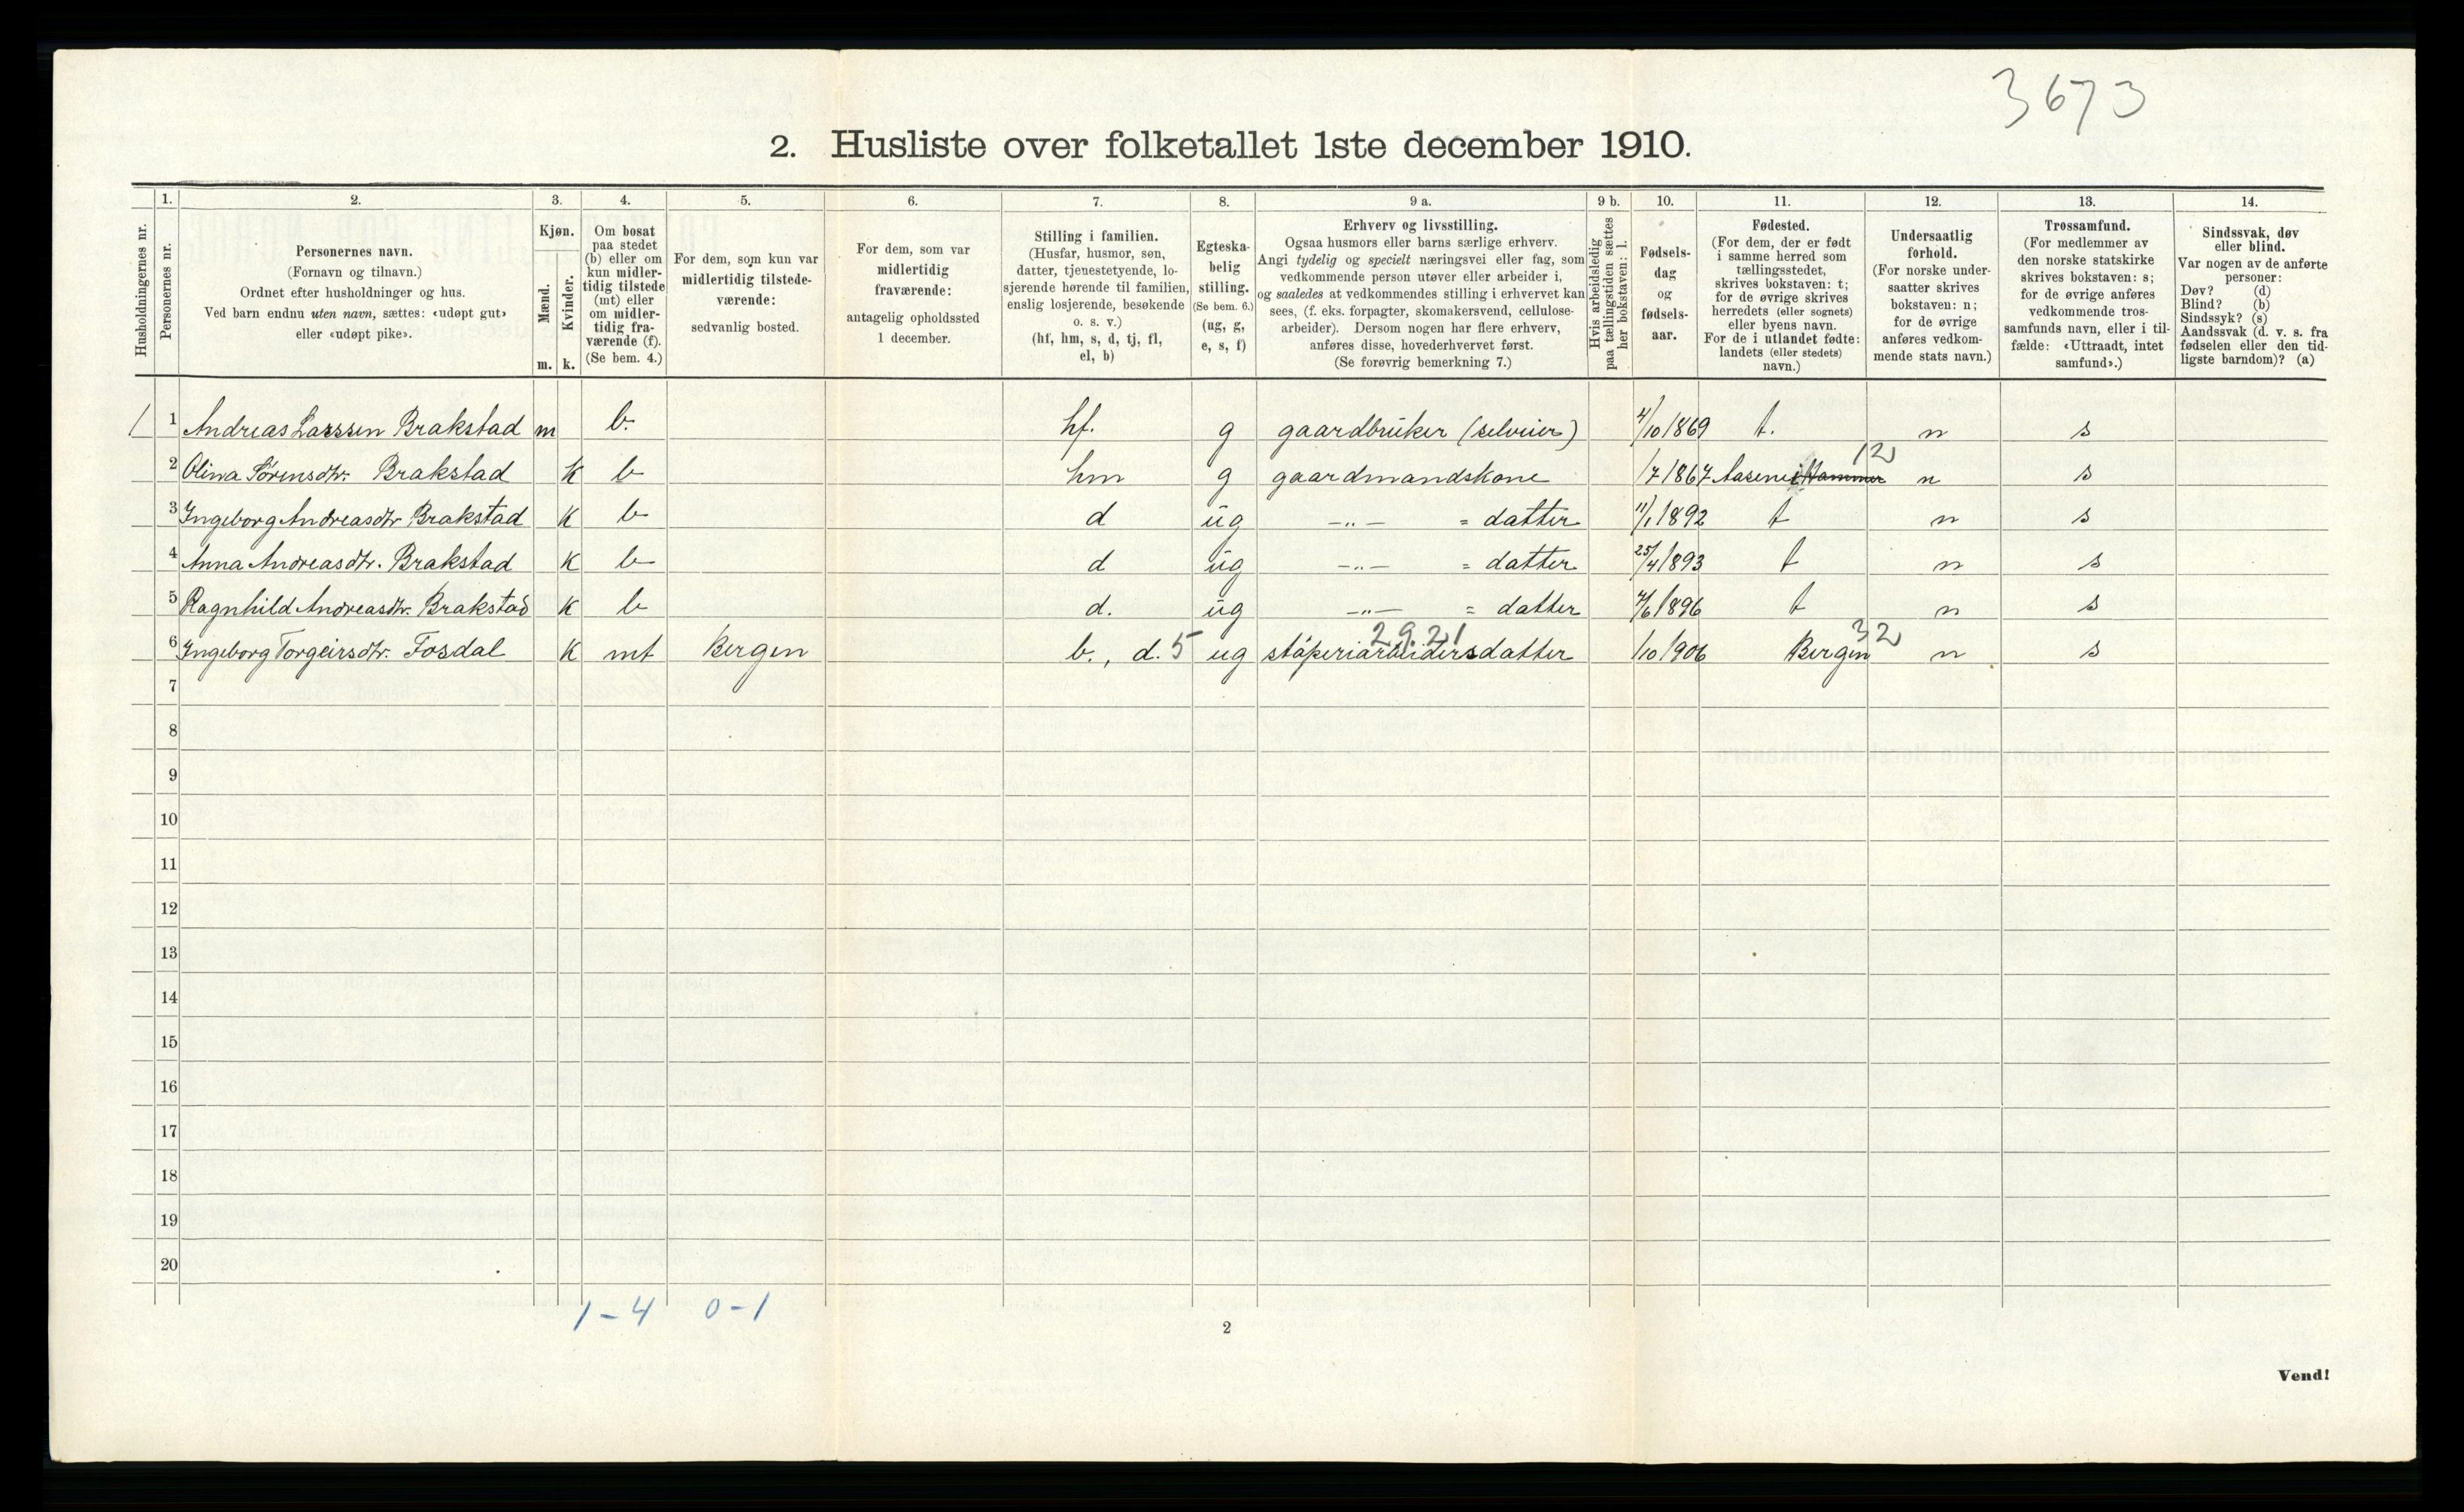 3673
2. Husliste over folketallet 1ste december 1910.
Husholdningernes nr.
1.
Personernes nr.
2.
Personernes navn.
(Fornavn og tilnavn.)
Ordnet efter husholdninger og hus.
Ved barn endnu uten navn, sættes: «udøpt gut»
eller «udøpt pike».
3.
Kjøn.
Mænd.
Kvinder.
m. k.
4.
Om bosat
paa stedet
(b) eller om
kun midler-
tidig tilstede
(mt) eller
om midler-
tidig fra-
værende (f).
(Se bem. 4.)
5.
For dem, som kun var
midlertidig tilstede-
værende:
sedvanlig bosted.
6.
For dem, som var
midlertidig
fraværende:
antagelig opholdssted
1 december.
7.
Stilling i familien.
(Husfar, husmor, søn,
datter, tjenestetyende, lo-
sjerende hørende til familien,
enslig losjerende, besøkende
o. s. v.)
(hf, hm, s, d, tj, fl,
el, b)
8.
Egteska-
belig
stilling.
(Se bem. 6.)
(ug, g,
e, s, f)
9 a.
Erhverv og livsstilling.
Ogsaa husmors eller barns særlige erhverv.
Angi tydelig og specielt næringsvei eller fag, som
vedkommende person utøver eller arbeider i,
og saaledes at vedkommendes stilling i erhvervet kan
sees, (f. eks. forpagter, skomakersvend, cellulose-
arbeider). Dersom nogen har flere erhverv,
anføres disse, hovederhvervet først.
(Se forøvrig bemerkning 7.)
9 b.
Hvis arbeidsledig
paa tællingstiden sættes
her bokstaven: l.
10.
Fødsels-
dag
og
fødsels-
aar.
11.
Fødested.
(For dem, der er født
i samme herred som
tællingsstedet,
skrives bokstaven: t;
for de øvrige skrives
herredets (eller sognets)
eller byens navn.
For de i utlandet fødte:
landets (eller stedets)
navn.)
12.
Undersaatlig
forhold.
(For norske under-
saatter skrives
bokstaven: n;
for de øvrige
anføres vedkom-
mende stats navn.)
13.
Trossamfund.
(For medlemmer av
den norske statskirke
skrives bokstaven: s;
for de øvrige anføres
vedkommende tros-
samfunds navn, eller i til-
fælde: «Uttraadt, intet
samfund».)
14.
Sindssvak, døv
eller blind.
Var nogen av de anførte
personer:
Døv? (d)
Blind? (b)
Sindssyk? (s)
Aandssvak (d. v. s. fra
fødselen eller den tid-
ligste barndom)? (a)
1 1 Andreas Larssen Brakstad m b. hf. g gaardbruker (selveier) 4/10 1869 t. n s
2 Olina Sørensdtr. Brakstad k b hm g gaardmandskone 1867 12 n s
3 Ingeborg Andreasdtr Brakstad k b d ug -"- = datter 11/1 1892 t n s
4 Anna Andreasdtr. Brakstad k b d ug -"- = datter 25/4 1893 t n s
5 Ragnhild Andreasdtr. Brakstad k b d. ug -"- = datter 1896 t n s
6 Ingeborg Torgeirsdtr. Fosdal k mt Bergen b., d. 5 ug støperiarbeidersdatter 2921 1/10 1906 Bergen 32 n s
7
8
9
10
11
12
13
14
15
16
17
18
19
20
1-4 0-1
2
Vend!